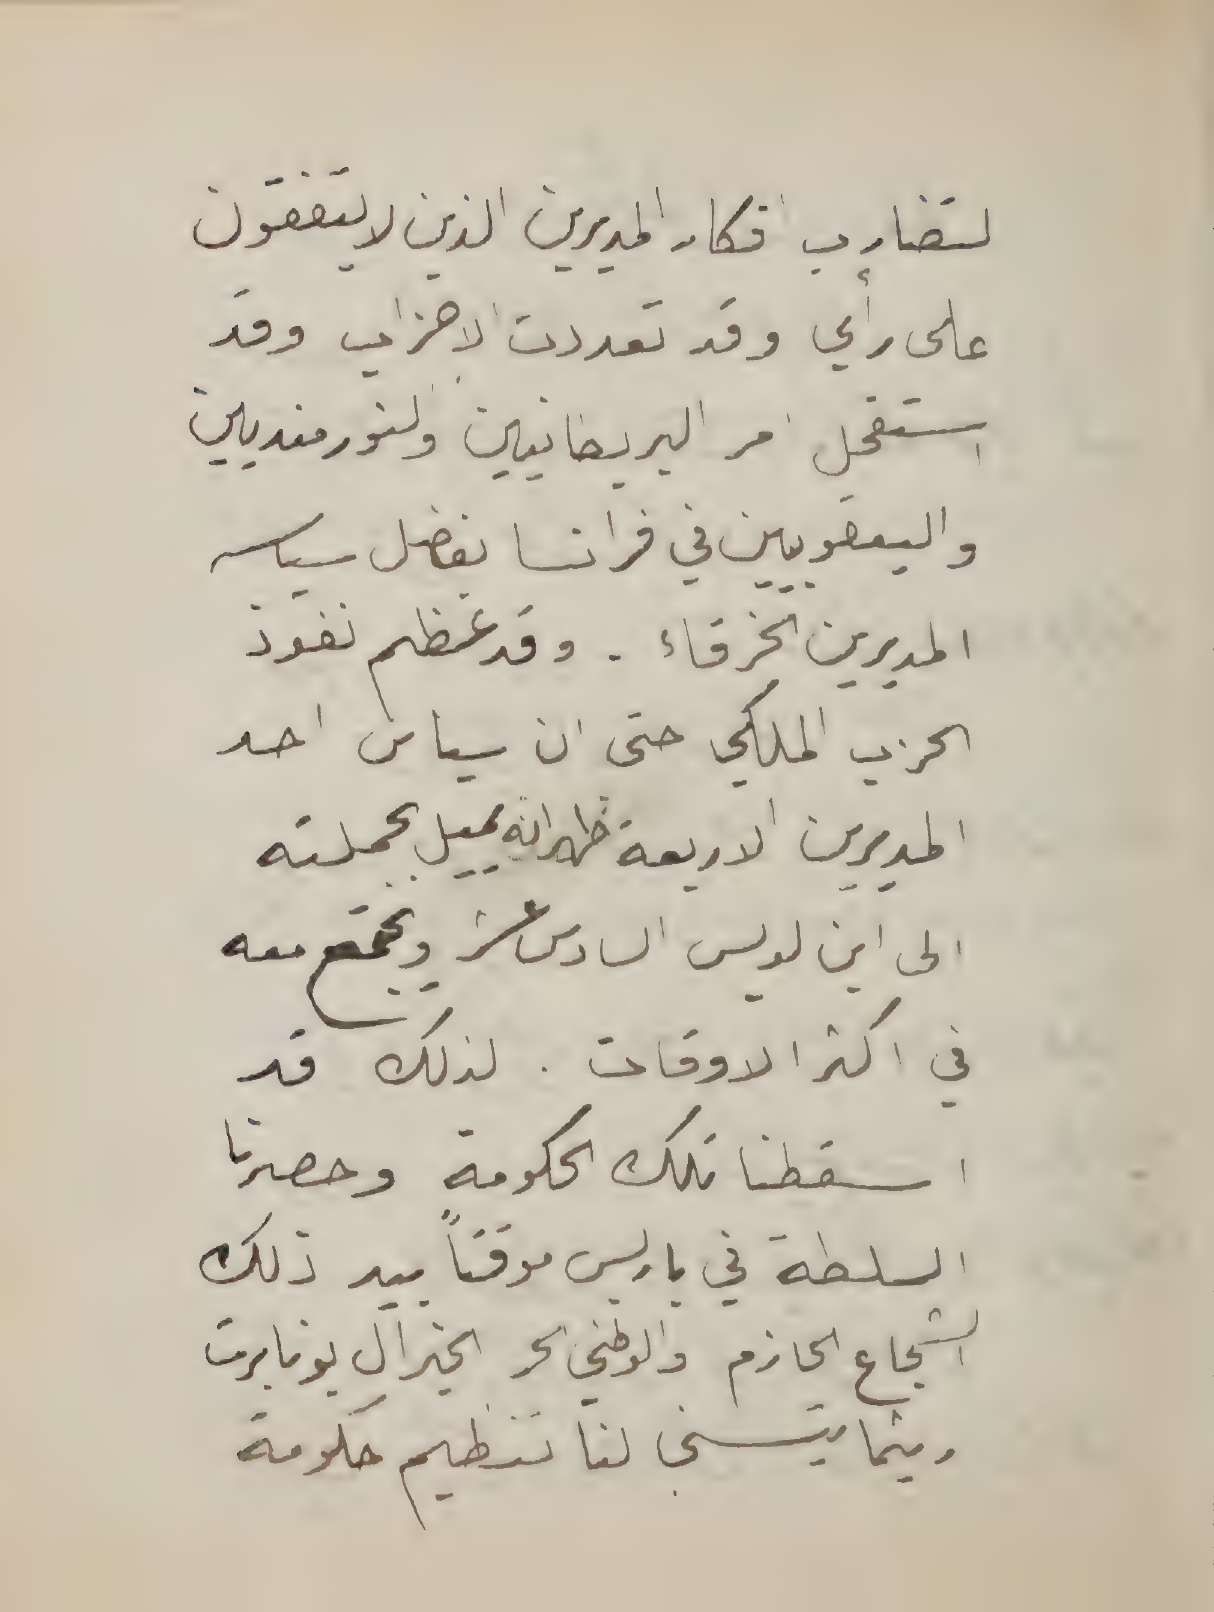 لتضارب افكار المديرين الذين لا يتفقون
على رأي وقد تعددت الاحزاب وقد
استفحل امر البريطانيين والنورمنديين
واليعقوبيين في فرانسا بفضل سياسه
المديرين الخرقاء . وقد عظم نفوذ
الحزب الملكي حتى ان سياس احد
المديرين الاربعة ظهر انه يميل بجملته
الى ابن لويس السادس عشر ويجتمع معه
في اكثر الاوقات . لذلك قد
اسقطنا تلك الحكومة وحصرنا
السلطة في باريس موقتاً بيد ذلك
الشجاع الحازم والوطني الحر الجنرال بونابرت
ريثما يتسنى لنا تنظيم حكومة